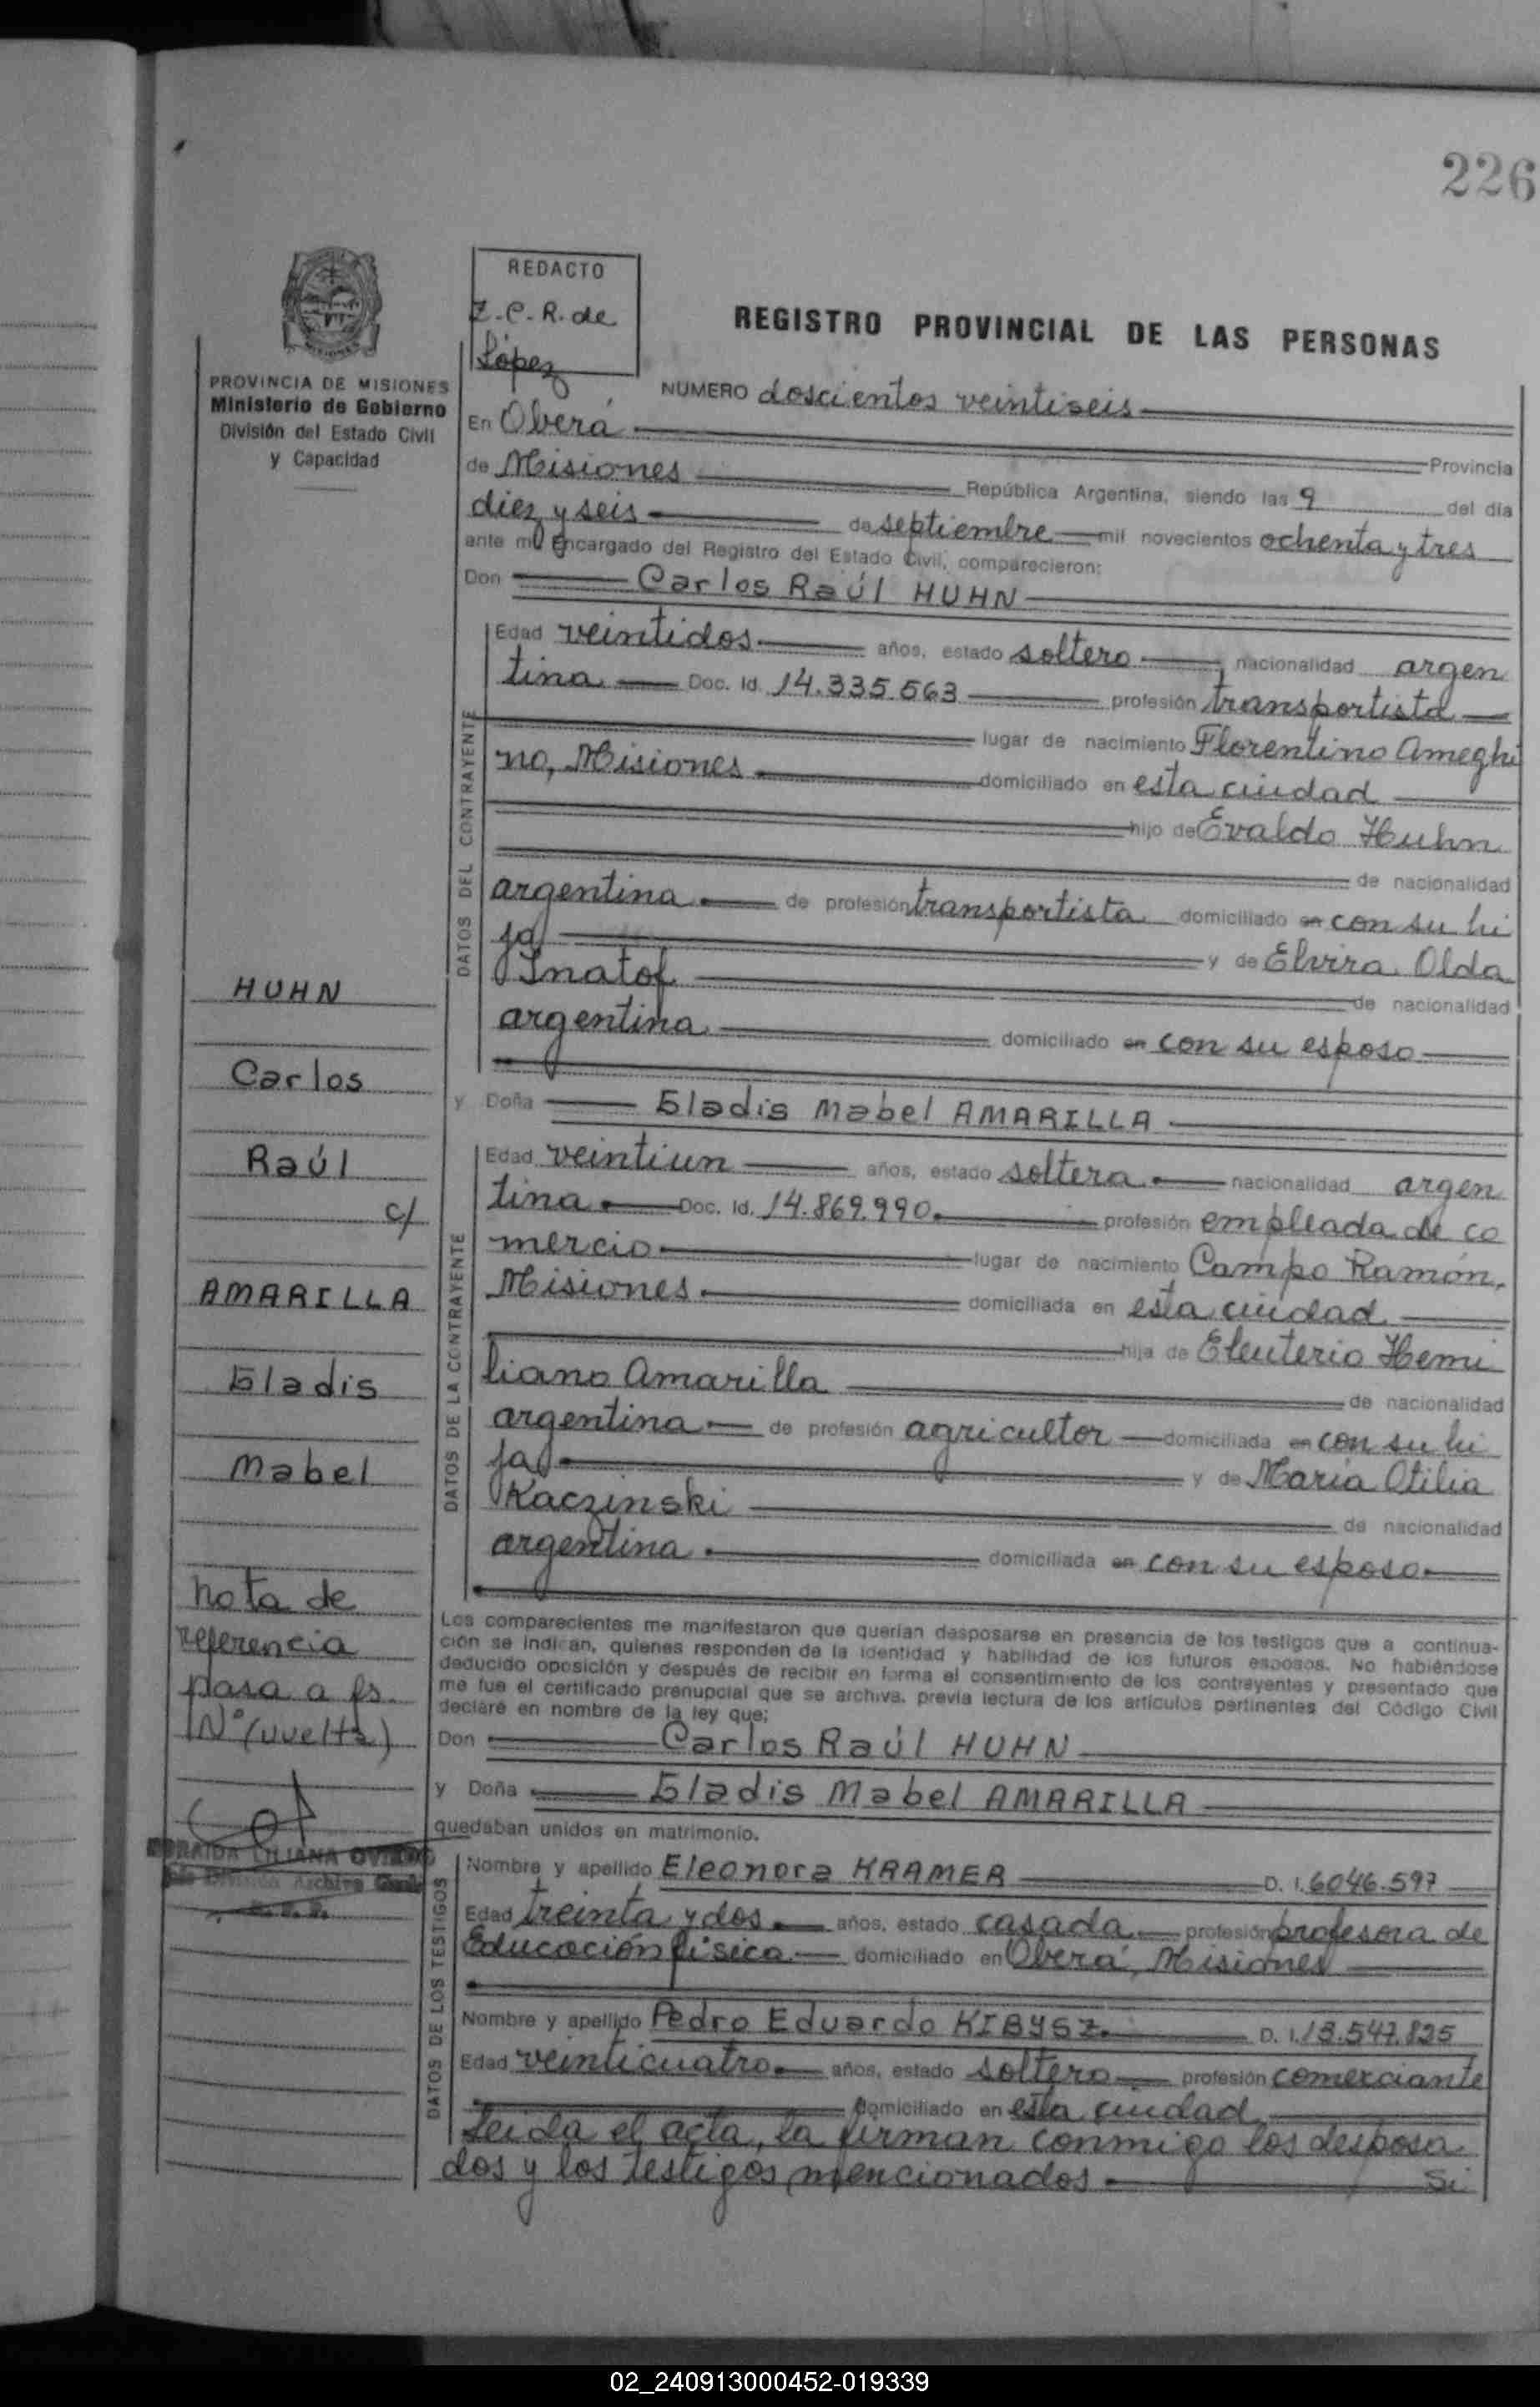 226
REDACTO
Z.C.R. de
López
REGISTRO PROVINCIAL DE LAS PERSONAS
PROVINCIA DE MISIONES
Ministerio de Gobierno
División del Estado Civil
y Capacidad
NUMERO doscientos veintiseis
En Oberá
Provincia
de Misiones República Argentina, siendo las 9 del día
diez y seis de septiembre mil novecientos ochenta y tres
ante mí Encargado del Registro del Estado Civil, comparecieron:
Don Carlos Raúl HUHN
DATOS DEL CONTRAYENTE
Edad veintidos años, estado soltero, nacionalidad argen
tina Doc. Id. 14.335.563 profesión transportista
lugar de nacimiento Florentino Ameghi
no, Misiones domiciliado en esta ciudad
hijo de Evaldo Huhn
de nacionalidad
argentina de profesión transportista domiciliado en con su hi
jo y de Elvira Olda
Inatof
de nacionalidad
argentina domiciliado en con su esposo
y Doña Gladis Mabel AMARILLA
DATOS DE LA CONTRAYENTE
Edad veintiun años, estado soltera nacionalidad argen
tina Doc. Id. 14.869.990 profesión empleada de co
mercio lugar de nacimiento Campo Ramón,
Misiones domiciliada en esta ciudad
hija de Eleuterio Hemi
liano Amarilla
de nacionalidad
argentina de profesión agricultor domiciliada en con su hi
ja y de María Otilia
Kaczinski
de nacionalidad
argentina domiciliada en con su esposo
Los comparecientes me manifestaron que querían desposarse en presencia de los testigos que a continua-
ción se indican, quienes responden de la identidad y habilidad de los futuros esposos. No habiéndose
deducido oposición y después de recibir en forma el consentimiento de los contrayentes y presentado que
me fue el certificado prenupcial que se archiva, previa lectura de los artículos pertinentes del Código Civil
declaré en nombre de la ley que;
Don Carlos Raúl HUHN
y Doña Gladis Mabel AMARILLA
quedaban unidos en matrimonio.
DATOS DE LOS TESTIGOS
Nombre y apellido Eleonora KRAMER D. I. 6046.597
Edad treinta y dos años, estado casada profesión profesora de
Educación física domiciliado en Oberá, Misiones
Nombre y apellido Pedro Eduardo KIBYSZ D. I. 13.547.825
Edad veinticuatro años, estado soltero profesión comerciante
domiciliado en esta ciudad
Leida el acta, la firman conmigo los desposa
dos y los testigos mencionados Si
HUHN
Carlos
Raúl
c/
AMARILLA
Gladis
Mabel
nota de
referencia
pasa a fs.
Nº (vuelta)
LILIANA
División Archivo
02_240913000452-019339